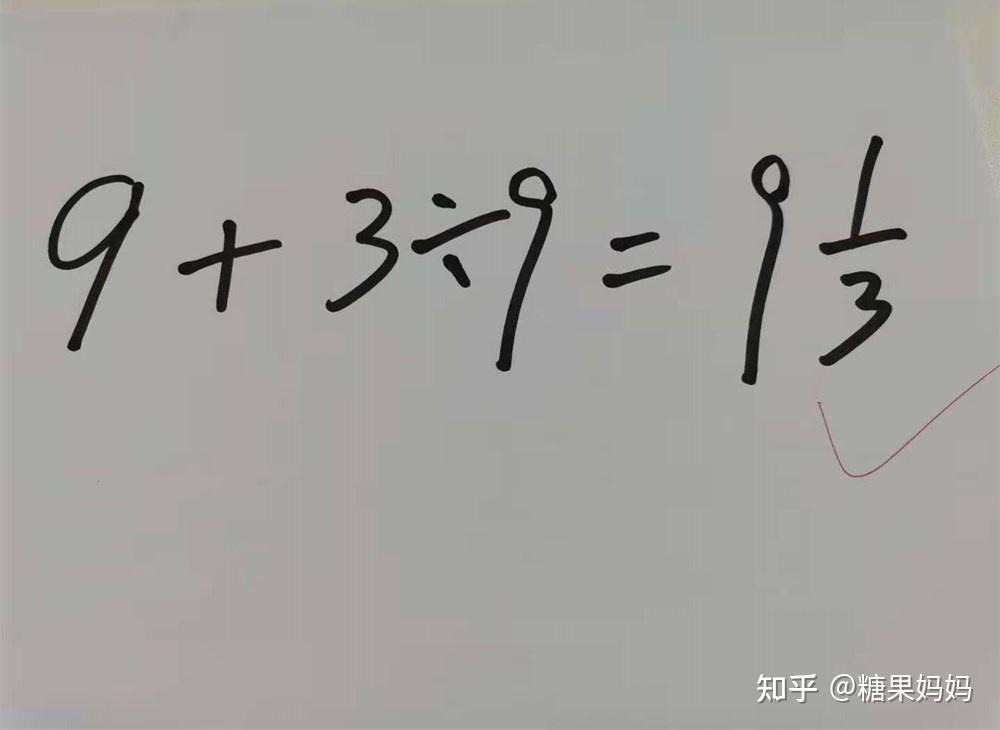 9 + 3 ÷ 9 = 9 1/3
知乎 @糖果妈妈